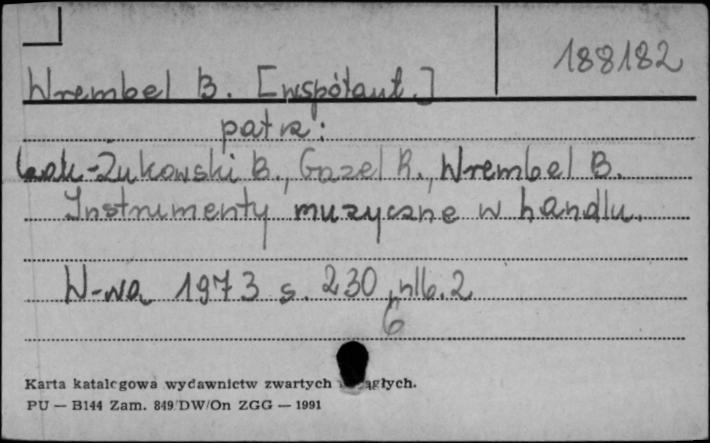 188182
Wrembel B. [współaut.]
patrz:
-Żukowski B., Gazel R., Wrembel B.
Instrumenty muzyczne w handlu.
W-wa 1973 s. 230, nlb. 2
6
Karta katalogowa wydawnictw zwartych ągłych.
PU — B144 Zam. 849/DW/On ZGG — 1991